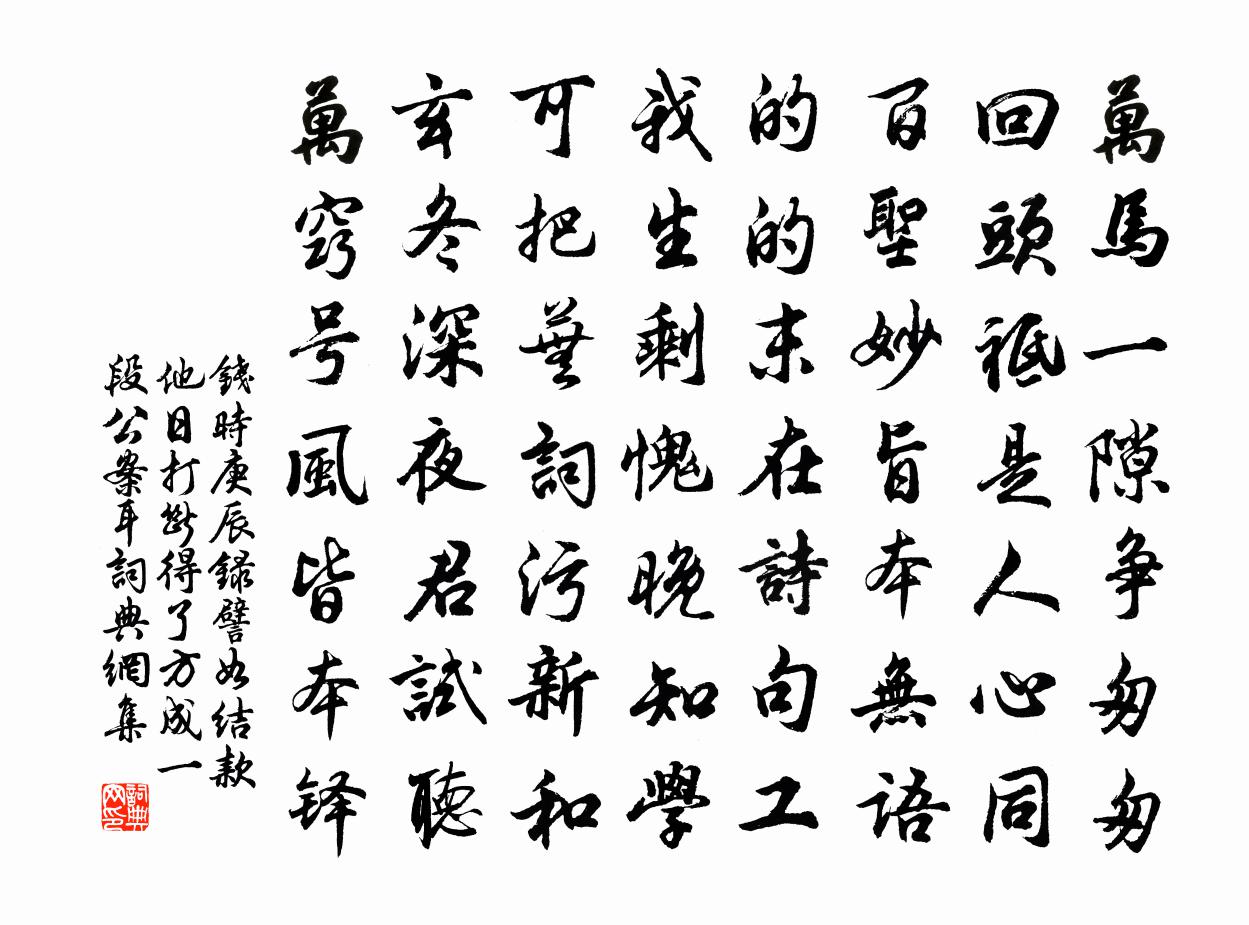 萬馬一隙爭匆匆
回頭祗是人心同
百聖妙旨本無語
的的未在詩句工
我生剩愧晚知學
可把蕪詞污新和
玄冬深夜君試聽
萬窍号風皆本铎
錢時庚辰録譬如結款
他日打斷得了方成一
段公案耳詞典網集
詞典網印